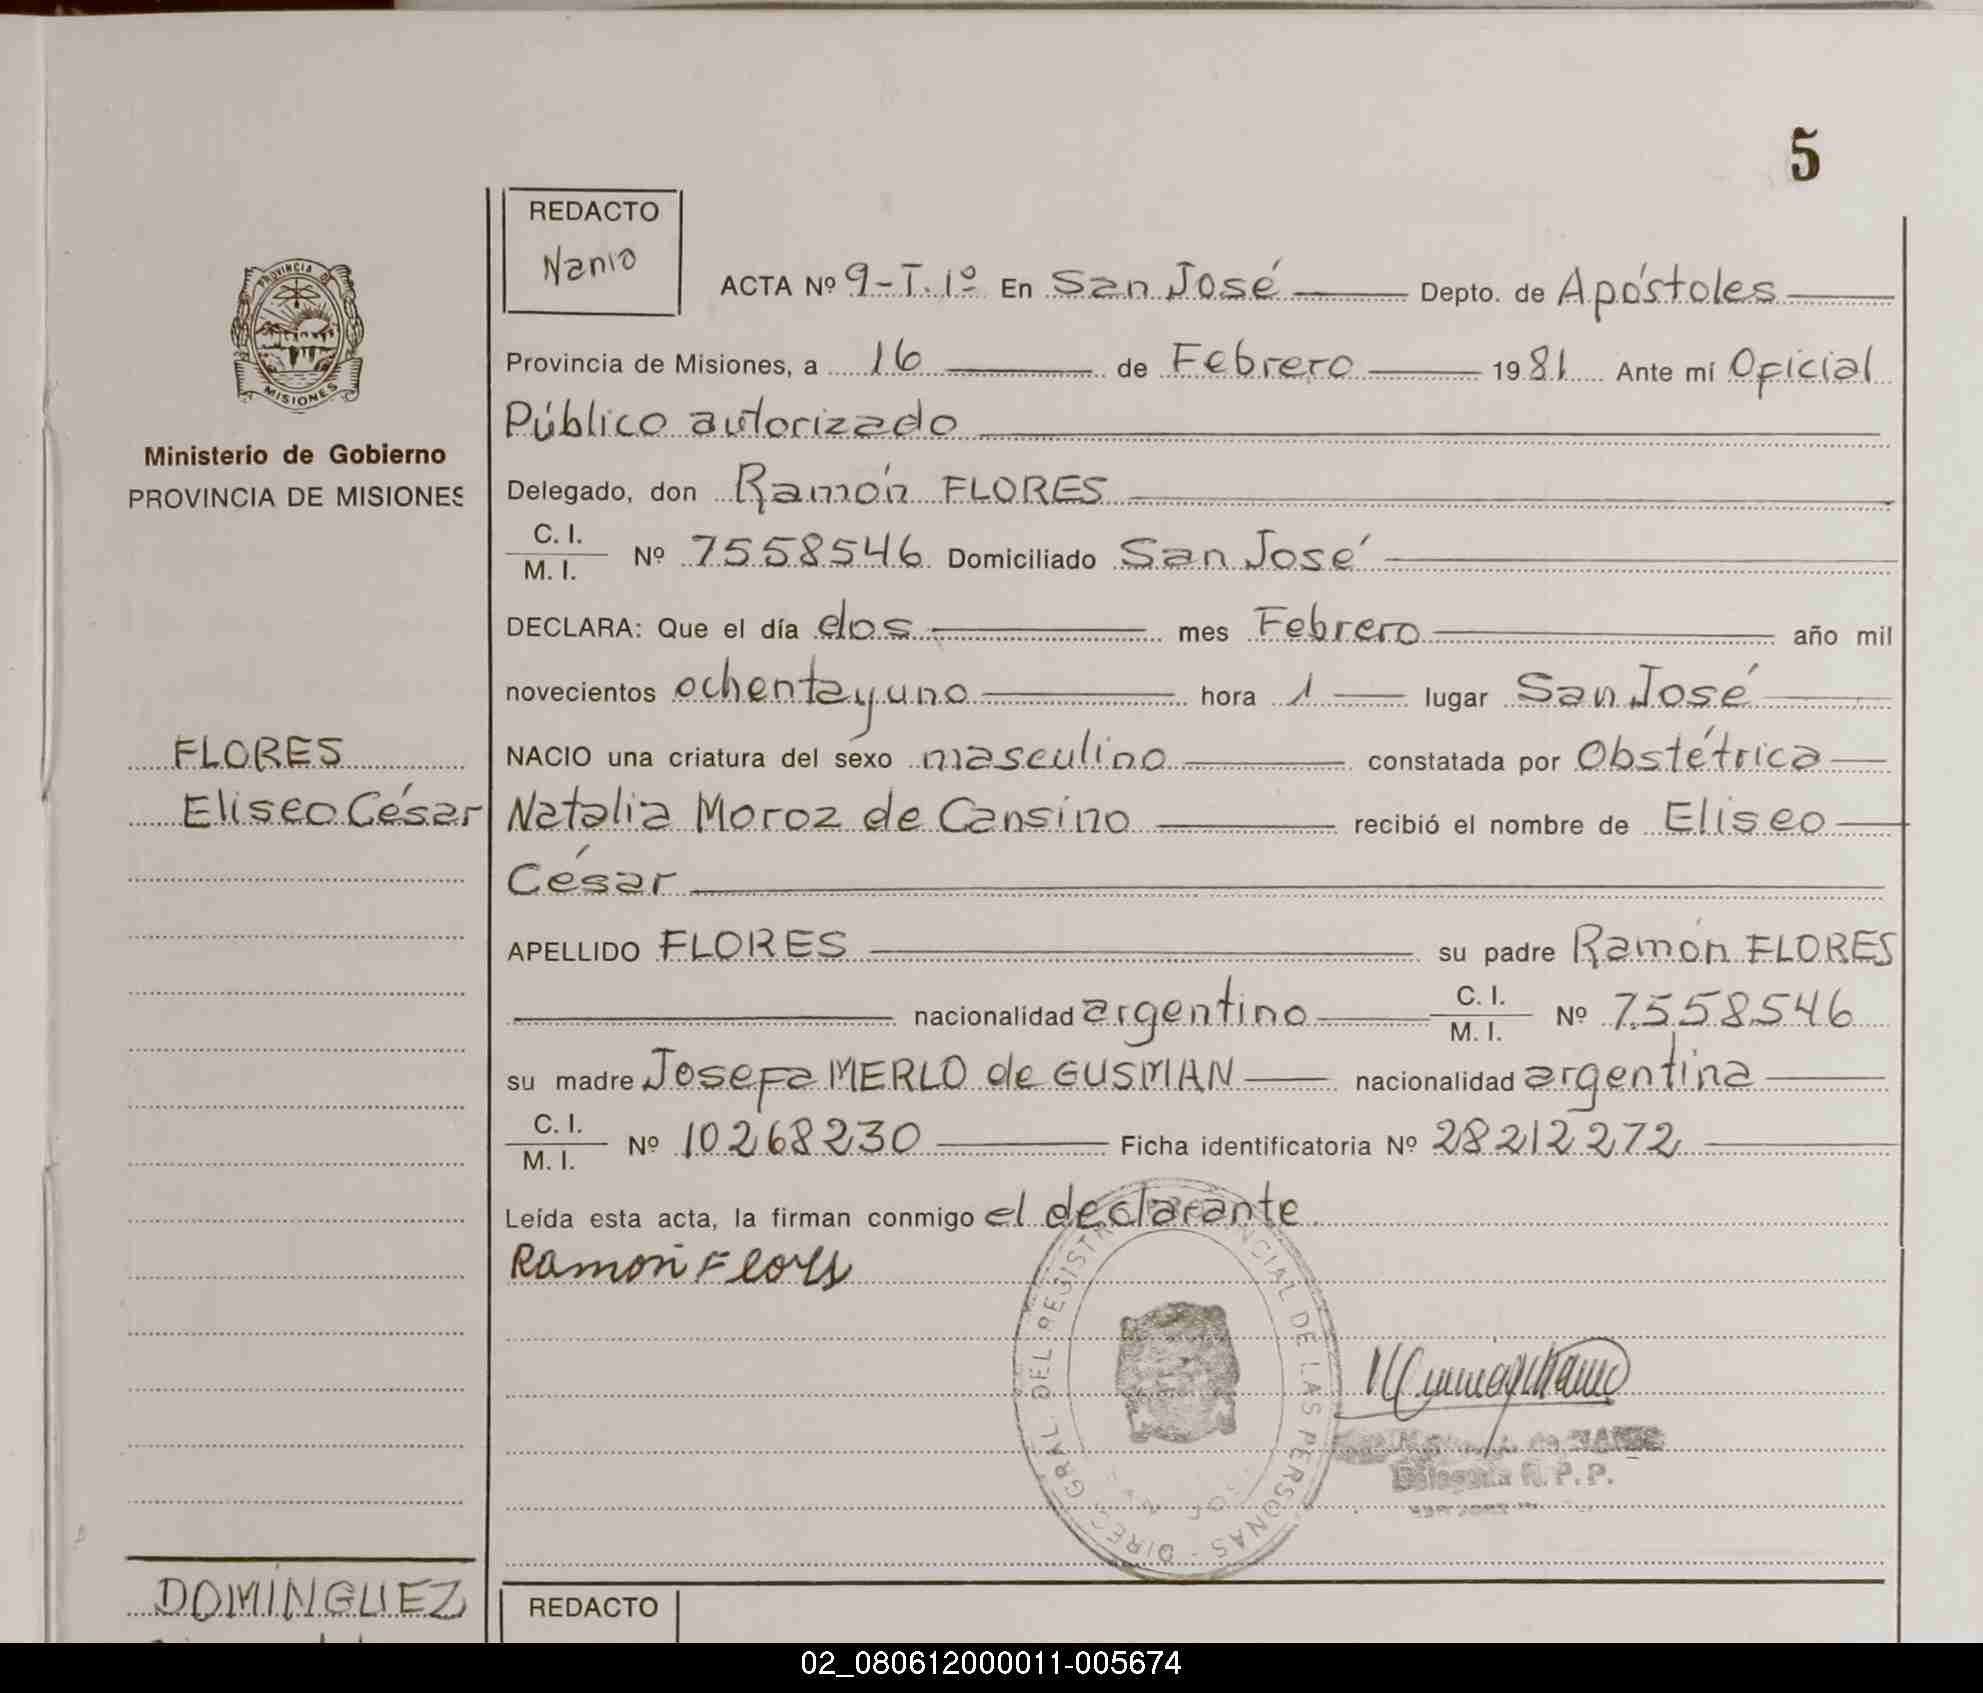 5
REDACTO
Nanio
ACTA Nº 9-T.1º En San José Depto. de Apóstoles
Provincia de Misiones, a 16 de Febrero 1981 Ante mí Oficial
Público autorizado
Delegado, don Ramón FLORES
C. I.
M. I. Nº 7558546 Domiciliado San José
DECLARA: Que el día dos mes Febrero año mil
novecientos ochenta y uno hora 1 lugar San José
NACIO una criatura del sexo masculino constatada por Obstétrica
Natalia Moroz de Cansino recibió el nombre de Eliseo
César
APELLIDO FLORES su padre Ramón FLORES
nacionalidad argentino C. I.
M. I. Nº 7558546
su madre Josefa MERLO de GUSMAN nacionalidad argentina
C. I.
M. I. Nº 10268230 Ficha identificatoria Nº 28212272
Leída esta acta, la firman conmigo el declarante
Ramon Flores
PROVINCIA DE
MISIONES
Ministerio de Gobierno
PROVINCIA DE MISIONES
FLORES
Eliseo César
DIREC. GRAL. DEL REGISTRO PROVINCIAL DE LAS PERSONAS
de NANIO
Delegada R. P. P.
DOMÍNGUEZ
REDACTO
02_080612000011-005674